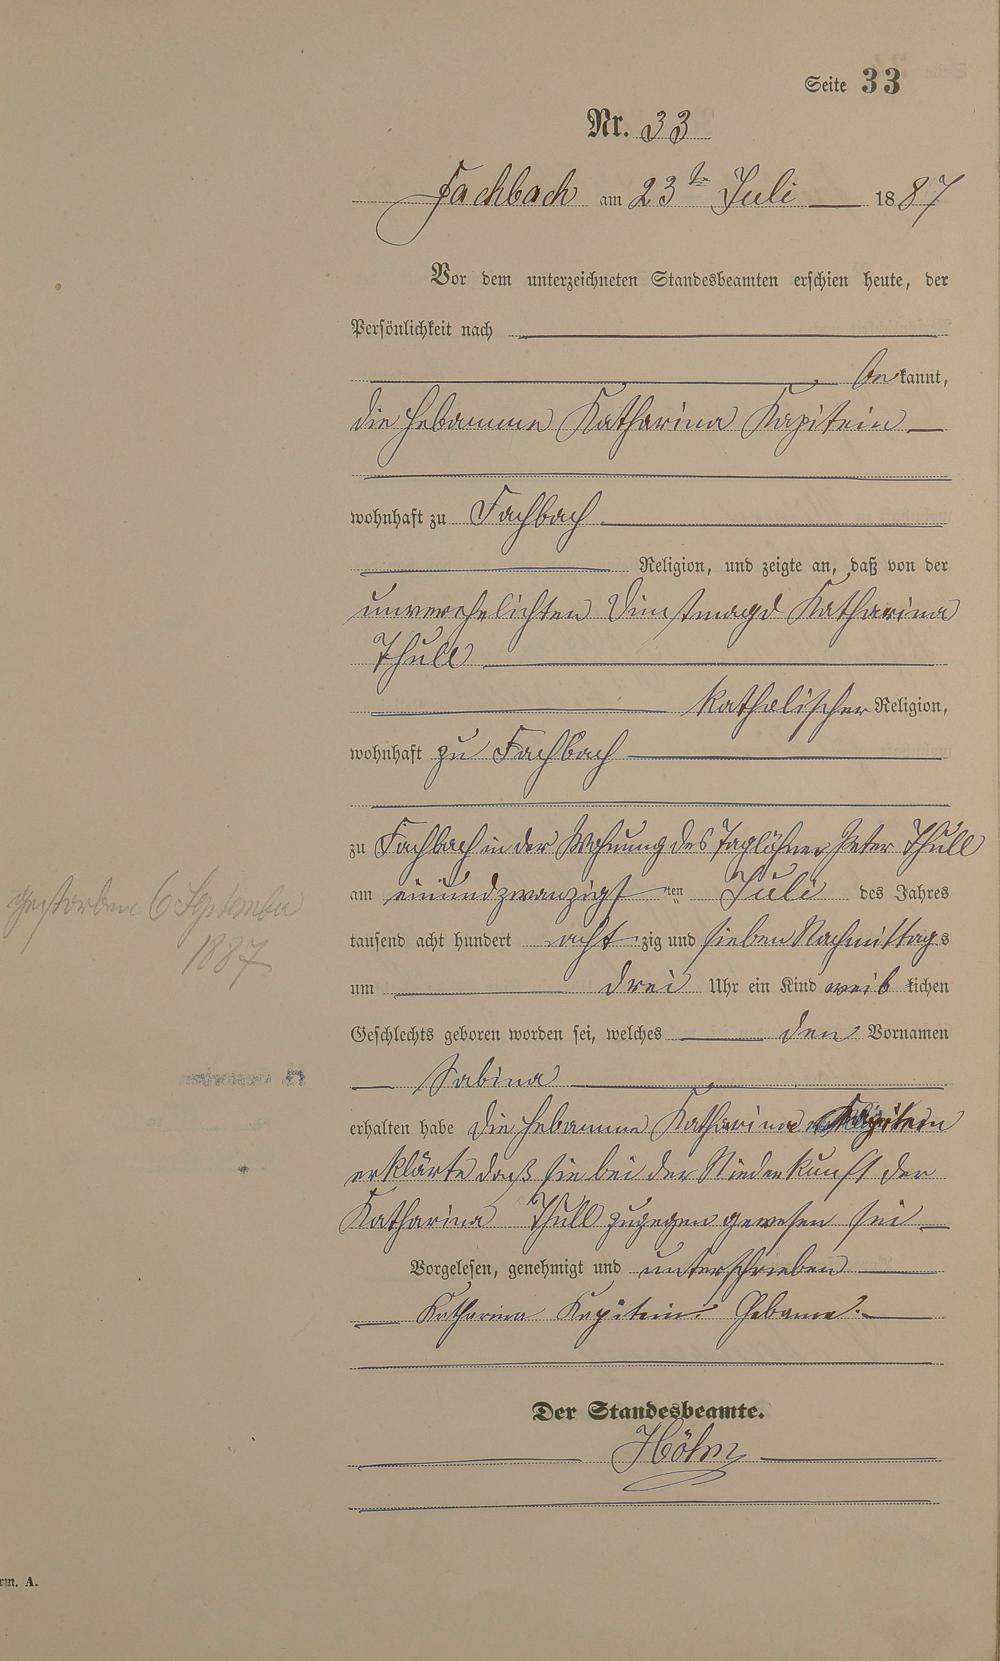 Seite 33
Nr. 33
Fachbach am 23ten Juli 1887
Vor dem unterzeichneten Standesbeamten erschien heute, der
Persönlichkeit nach
bekannt,
die Hebamme Katharina Kapitein
wohnhaft zu Fachbach
Religion, und zeigte an, daß von der
unverehelichten Dienstmagd Katharina
Thull
katholischer Religion,
wohnhaft zu Fachbach
zu Fachbach in der Wohnung des Taglöhner Peter Thull
am einundzwanzigsten Juli des Jahres
tausend acht hundert achtzig und sieben Nachmittags
um drei Uhr ein Kind weiblichen
Geschlechts geboren worden sei, welches den Vornamen
Sabina
erhalten habe die Hebamme Katharina Kapitein
erklärte daß sie bei der Niederkunft der
Katharina Thull zugegen gewesen sei
Vorgelesen, genehmigt und unterschrieben
Katharina Kapitein Hebame.
Der Standesbeamte.
Höhn
gestorben 6 September
1887
rm. A.